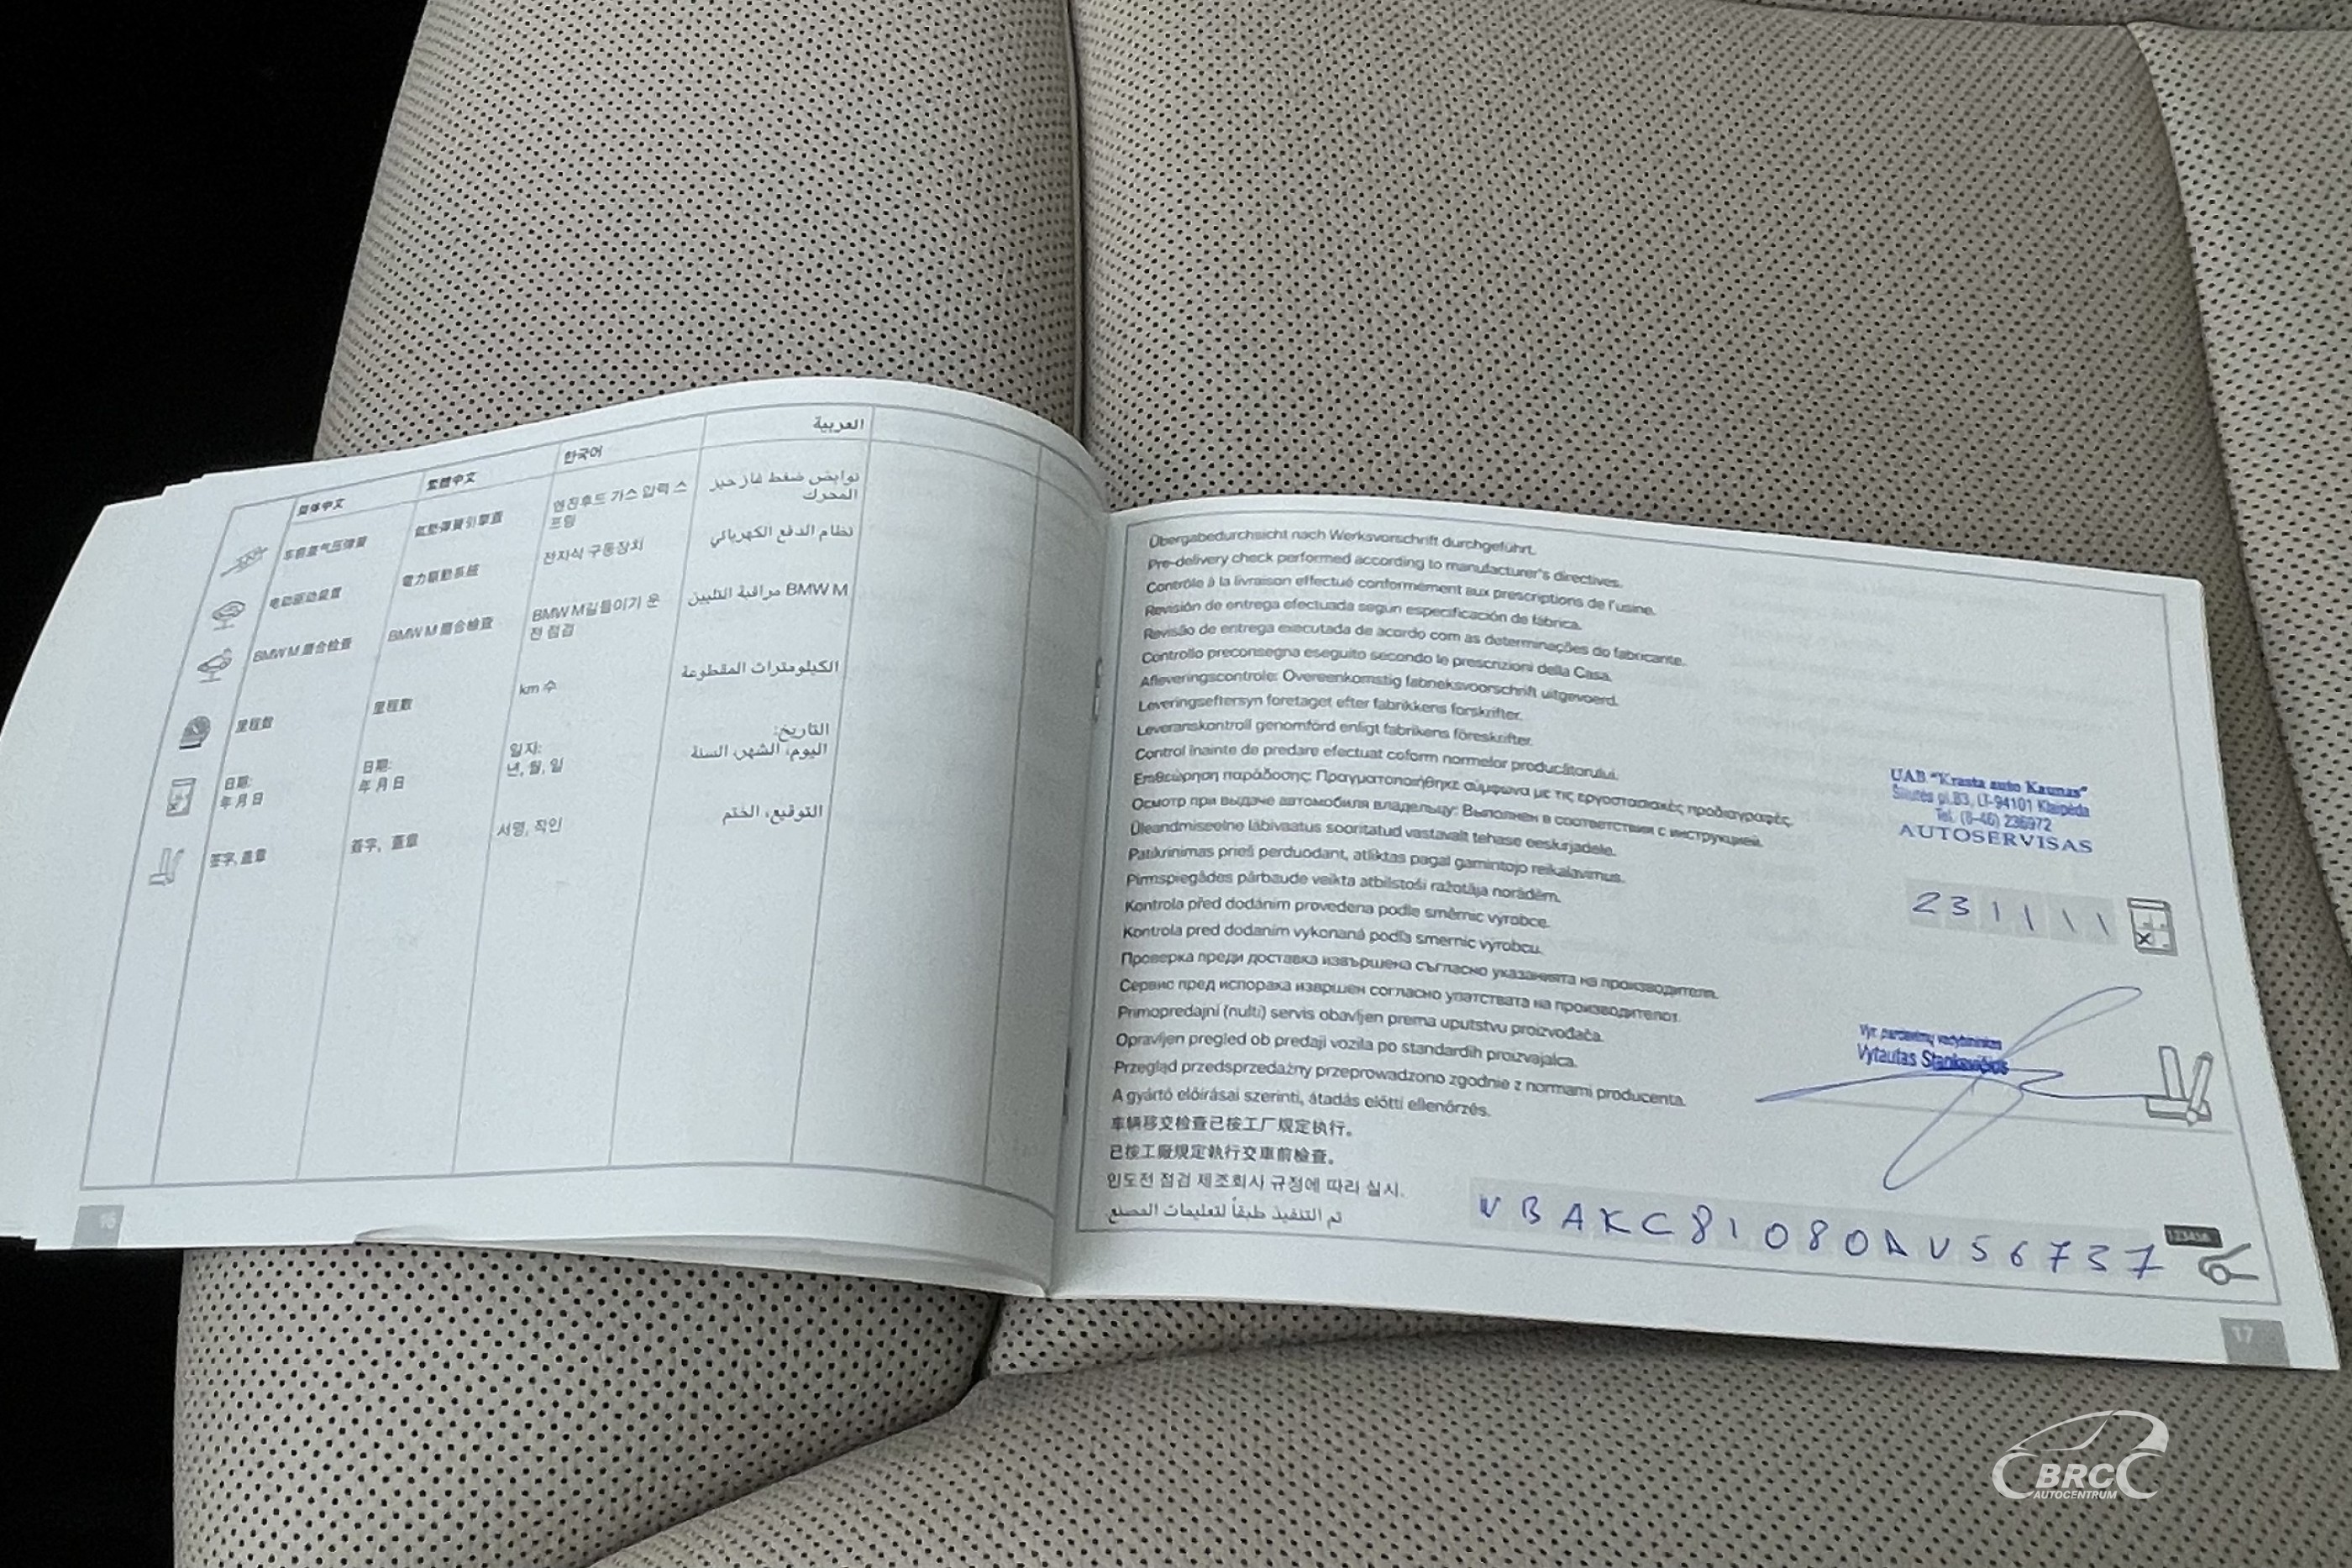 简体中文
繁體中文
한국어
العربية
车前盖气压弹簧
氣墊彈簧引擎蓋
엔진후드 가스 압력 스
프링
نوابض ضغط غاز حيز
المحرك
电动驱动装置
電力驅動系統
전자식 구동장치
نظام الدفع الكهربائي
BMW M 磨合检查
BMW M 磨合檢查
BMW M길들이기 운
전 점검
BMW M مراقبة التليين
里程数
里程數
km 수
الكيلومترات المقطوعة
日期:
年 月 日
日期:
年 月 日
일자:
년, 월, 일
التاريخ:
اليوم، الشهر، السنة
签字, 盖章
簽字, 蓋章
서명, 직인
التوقيع، الختم
16
Übergabedurchsicht nach Werksvorschrift durchgeführt.
Pre-delivery check performed according to manufacturer's directives.
Contrôle à la livraison effectué conformément aux prescriptions de l'usine.
Revisión de entrega efectuada según especificación de fábrica.
Revisão de entrega executada de acordo com as determinações do fabricante.
Controllo preconsegna eseguito secondo le prescrizioni della Casa.
Afleveringscontrole: Overeenkomstig fabrieksvoorschrift uitgevoerd.
Leveringseftersyn foretaget efter fabrikkens forskrifter.
Leveranskontroll genomförd enligt fabrikens föreskrifter.
Control înainte de predare efectuat coform normelor producătorului.
Επιθεώρηση παράδοσης: Πραγματοποιήθηκε σύμφωνα με τις εργοστασιακές προδιαγραφές.
Осмотр при выдаче автомобиля владельцу: Выполнен в соответствии с инструкцией.
Üleandmiseelne läbivaatus sooritatud vastavalt tehase eeskirjadele.
Patikrinimas prieš perduodant, atliktas pagal gamintojo reikalavimus.
Pirmspiegādes pārbaude veikta atbilstoši ražotāja norādēm.
Kontrola před dodáním provedena podle směrnic výrobce.
Kontrola pred dodaním vykonaná podľa smerníc výrobcu.
Проверка преди доставка извършена съгласно указанията на производителя.
Сервис пред испорака извршен согласно упатствата на производителот.
Primopredajni (nulti) servis obavljen prema uputstvu proizvođača.
Opravljen pregled ob predaji vozila po standardih proizvajalca.
Przegląd przedsprzedażny przeprowadzono zgodnie z normami producenta.
A gyártó előírásai szerinti, átadás előtti ellenőrzés.
车辆移交检查已按工厂规定执行。
已按工廠規定執行交車前檢查。
인도전 점검 제조회사 규정에 따라 실시.
تم التنفيذ طبقاً لتعليمات المصنع.
UAB "Krasta auto Kaunas"
Šilutės pl.83, LT-94101 Klaipėda
Tel. (8-46) 236972
AUTOSERVISAS
231111
Vyr. pardavimų vadybininkas
Vytautas Stankevičius
WBAKC81080AV56737
123456
17
BRC
AUTOCENTRUM